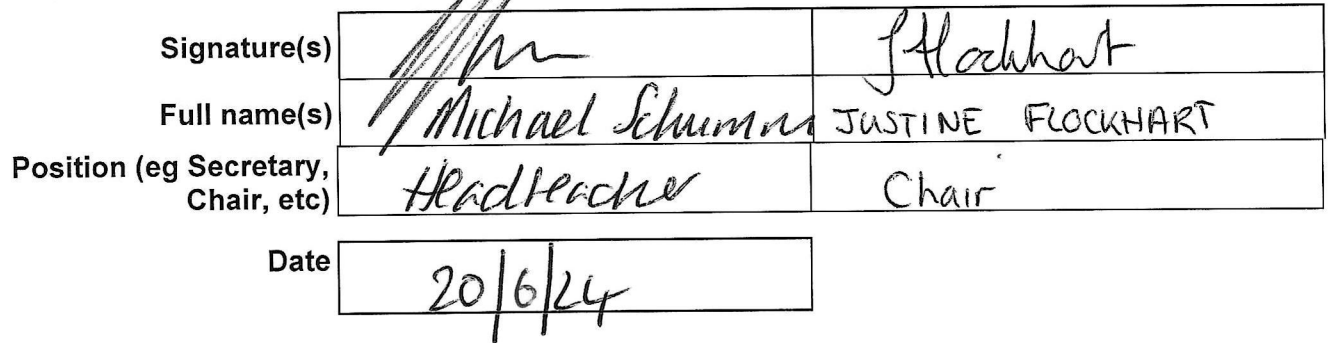 Signature(s) JFlockhart
Full name(s) Michael Schumm JUSTINE FLOCKHART
Position (eg Secretary,
Chair, etc) Headteacher Chair
Date 20/6/24